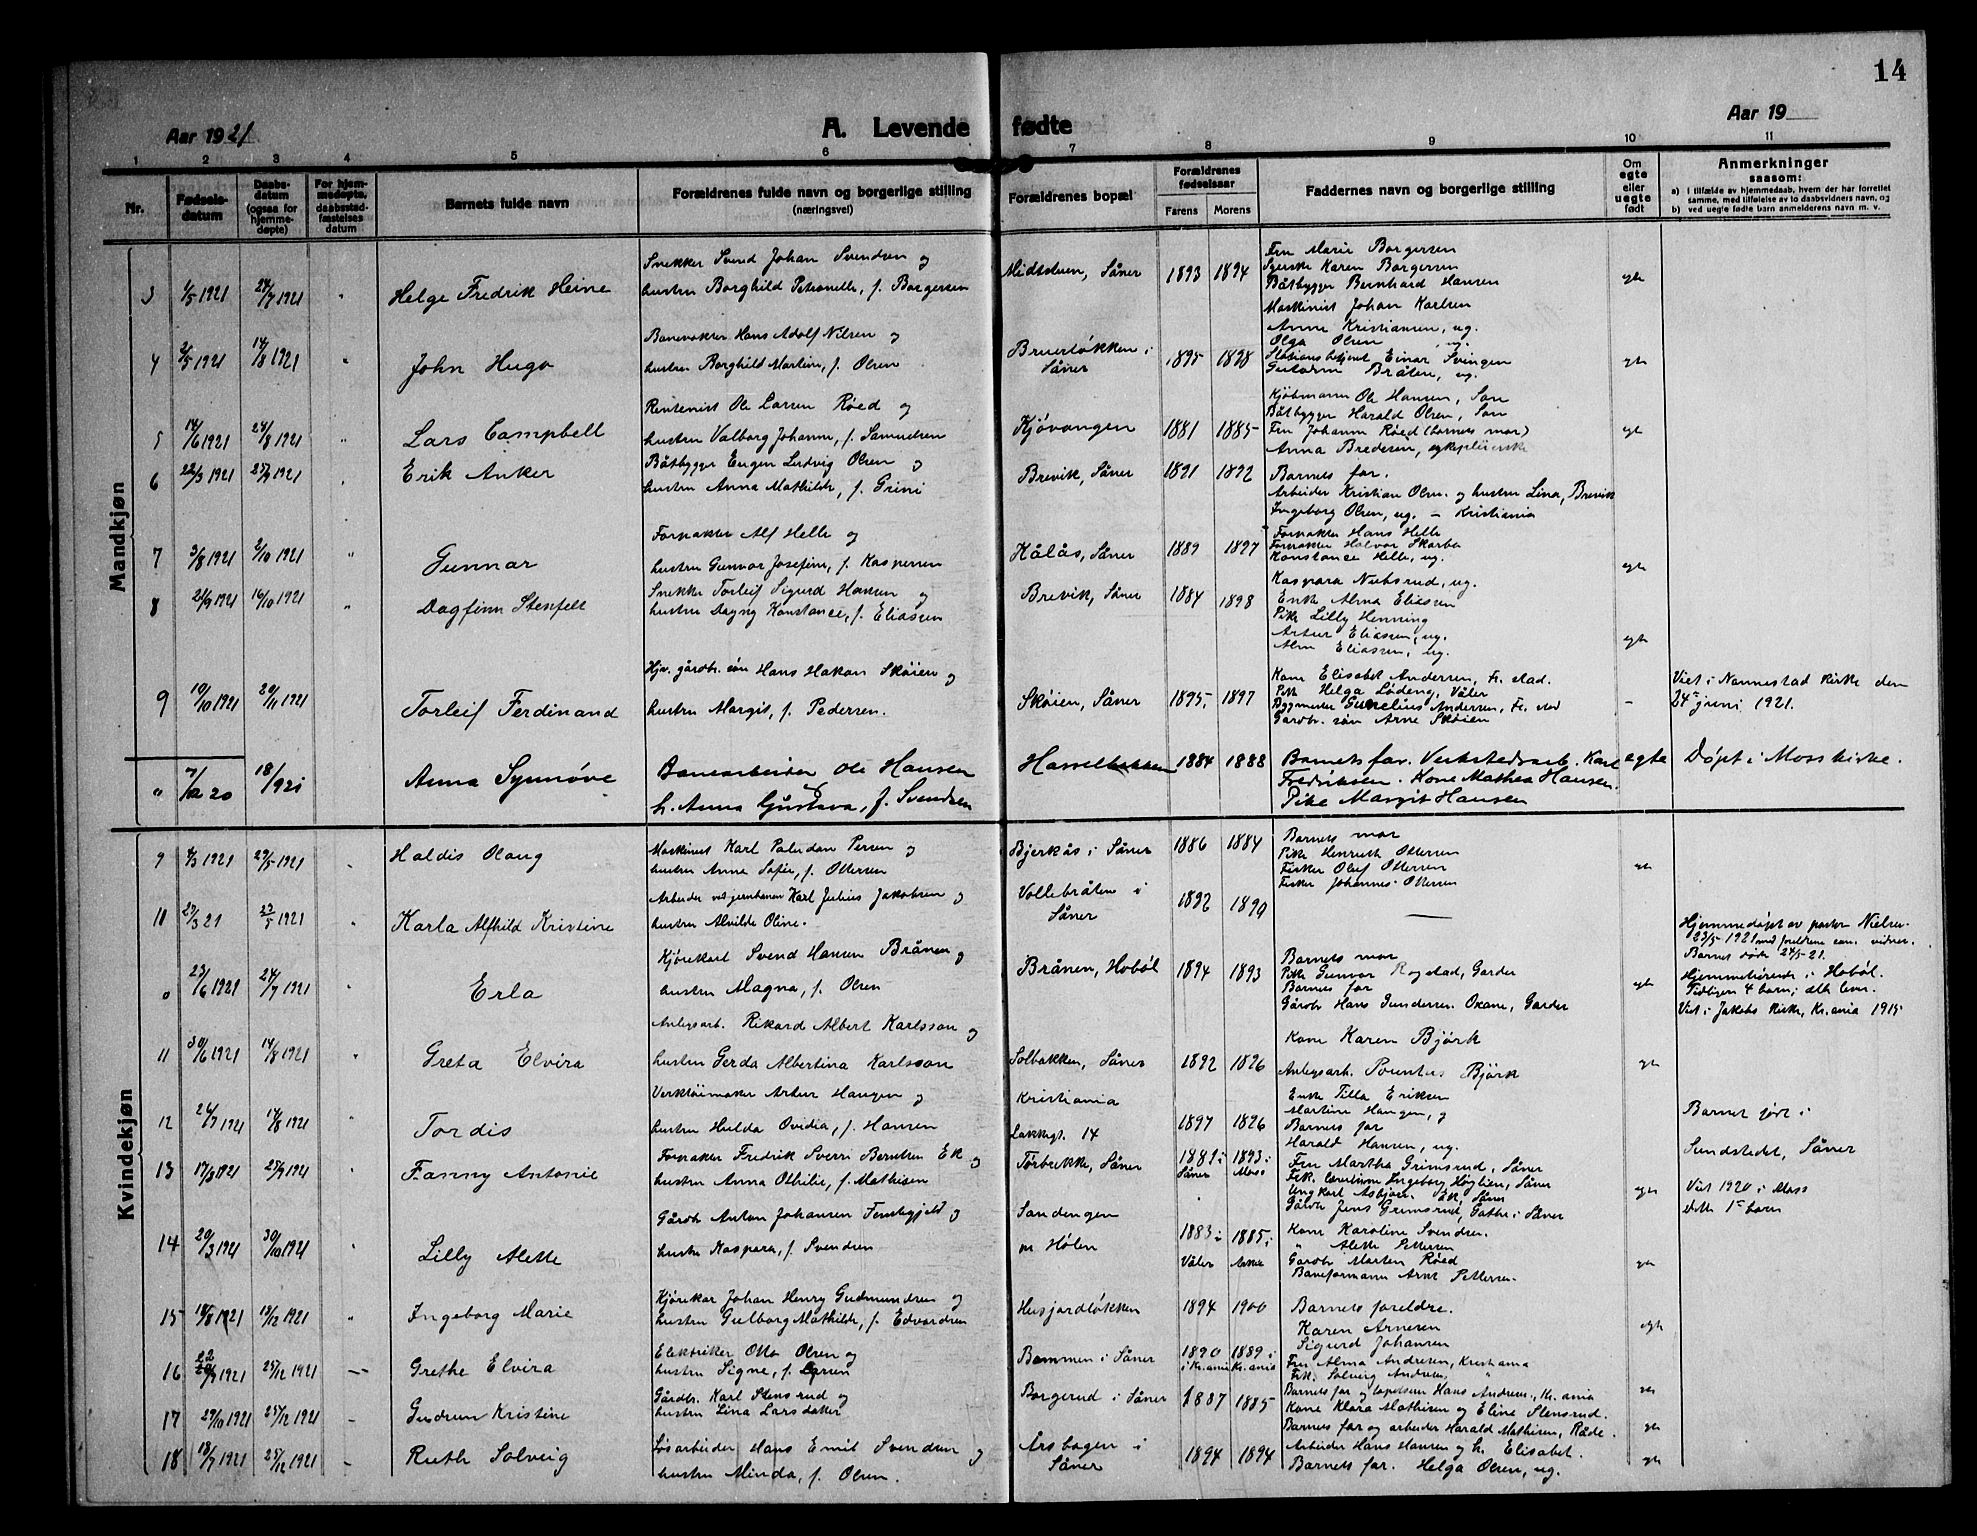 14
Aar 1921
A. Levende fødte
Aar 19
1 2 3 4 5 6 7 8 9 10 11
Nr.
Fødsels-
datum
Daabs-
datum
(ogsaa for
hjemme-
døpte)
For hjem-
medøpte,
daabsstad-
fæstelses
datum
Barnets fulde navn
Forældrenes fulde navn og borgerlige stilling
(næringsvei)
Forældrenes bopæl
Forældrenes
fødselsaar
Farens Morens
Faddernes navn og borgerlige stilling
Om
egte
eller
uegte
født
Anmerkninger
saasom:
a) i tilfælde av hjemmedaab, hvem der har forrettet
samme, med tilføielse av to daabsvidners navn, og
b) ved uegte fødte barn anmelderens navn m. v.
Mandkjøn
Snekker Svend Johan Svendsen og
3 1/5 1921 24/7 1921 " Helge Fredrik Heine hustru Borghild Petronelle, f. Borgersen
Midtstuen, Såner 1893 1894 egte
Fru Marie Borgersen
Syerske Karen Borgersen
Båtbygger Bernhard Hansen
Maskinist Johan Karlsen
Banevokter Hans Adolf Nilsen og
4 2/5 1921 14/8 1921 " John Hugo hustru Borghild Martine, f. Olsen
Bruerløkken i
Såner
1895 1898 egte
Anne Kristiansen, ug.
Olga Olsen ug.
Stationsbetjent Einar Svingen
Gustava Bråten, ug.
Rentenist Ole Larsen Røed og
5 14/6 1921 24/8 1921 " Lars Campbell hustru Valborg Johanne, f. Samuelsen
Kjøvangen 1881 1885 egt
Kjøbmann Ole Hansen, Son
Båtbygger Harald Olsen, Son
Fru Johanne Røed (barnets mor)
Anna Bredesen, sykepleierske
Båtbygger Eugen Ludvig Olsen og
6 22/3 1921 25/9 1921 Erik Anker hustru Anna Mathilde, f. Grini
Brevik, Såner 1891 1892
Barnets far.
Arbeider Kristian Olsen og hustru Lina, Brevik
Ingeborg Olsen, ug. - Kristiania
Forpakter Alf Helle og
7 3/8 1921 2/10 1921 " Gunnar hustru Gunvor Josefine, f. Kaspersen
Kålås, Såner 1889 1897 egte
Forpakter Hans Helle
Forpakter Halvor Skarbø
Konstance Helle, ug.
Kaspara Nubsrud, ug.
Snekker Torleif Sigurd Hansen og
8 21/9 1921 16/10 1921 " Dagfinn Stenfelt hustru Dagny Konstance, f. Eliassen
Brevik, Såner 1884 1898 egte
Enke Alma Eliassen
Pike Lilly Henning
Artur Eliassen, ug.
Alm Eliassen, ug.
Hjv. gårdbr. søn Hans Hakon Skøien og
9 10/10 1921 20/11 1921 Torleif Ferdinand hustru Margit, f. Pedersen.
Skøien, Såner 1895 1897 -
Kone Elisabet Andersen, Fr. stad.
Pike Helga Lødeng, Våler
Byggmester Gunelius Andersen, Fr. stad
Gardbr. søn Arne Skøien
Viet i Nannestad kirke den
24de juni 1921.
" 7/12 20 18/ 1921 Anna Synnøve Banearbeider Ole Hansen
h. Anna Gustava, f. Svendsen
Hasselbakken 1884 1888
Barnets far. Verkstedsarb. Karl
Fredriksen. Kone Mathea Hansen.
Pike Margit Hansen
egte Døpt i Moss kirke.
Kvindekjøn
9 4/3 1921 29/5 1921 Haldis Olaug
Maskinist Karl Paludan Persen og
hustru Anna Sofie, f. Ottersen
Bjerkås i Såner 1886 1884 egt
Barnets mor
Pike Henriette Ottersen
Fisker Oluf Ottersen
Fisker Johannes Ottersen
Arbeider ved jernbanen Karl Julius Jakobsen og
10 27/3 21 23/5 1921 Karla Alfhild Kristine hustru Alvilde Oline.
Vollebråten i
Såner
1892 1890 —
Hjemmedøpt av pastor Nielsen
23/5 1921 med foreldrene som vidner.
Barnet døde 24/5-21.
Kjørekarl Svend Hansen Brånen og
0 23/6 1921 24/7 1921 " Erla hustru Magna, f. Olsen
Brånen, Hobøl 1894 1893 egt
Barnets mor
Pike Gunvor Rogstad, Garder
Barnets far
Gårdbr Hans Gundersen Oxane, Garder
Hjemmehørende i Hobøl.
Tidligere 4 barn; alle lever.
Viet i Jakobs Kirke, Kr.ania 1915
Anlegsarb. Rikard Albert Karlsson og
11 30/6 1921 14/8 1921 " Greta Elvira hustru Gerda Albertina Karlsson
Solbakken, Såner 1892 1896 egte
Kone Karen Bjørk
Anlegsarb. Pontus Bjørk
Verktøimaker Artur Haugen og
12 26/7 1921 14/8 1921 " Tordis hustru Hulda Ovidia, f. Hansen
Kristiania
Lakkegt. 14
1897 1896
Enke Tilla Eriksen
Martine Haugen, g
Barnets far
Harald Hansen, ug.
Barnet født i
Sundstedet, Såner
13 17/8 1921 25/9 1921 " Fanny Antonie
Forpakter Fredrik Sverre Berntsen Ek og
hustru Anna Othilie, f. Mathisen
Torbekk, Såner 1881 i
Såner
1893 i
Moss
Fru Martha Grimsrud, Såner
Frk. lærerinne Ingeborg Høglien, Såner
Ungkarl Asbjørn Ek, Såner
Gårdbr Jens Grimsrud, Gathe i Såner
egte
Viet 1920 i Moss
dette 1ste barn
Gårdbr Anton Johansen Fembygjeld og
14 20/3 1921 30/10 1921 " Lilly Alette hustru Kaspara, f. Svendsen
Sandengen
pr. Hølen
1883 i
Våler
1885 i
Kone Karoline Svendsen.
" Alette Pettersen
Gårdbr Marten Røed
Baneformann Arne Pettersen.
egte
Kjørekar Johan Henry Gudmundsen og
15 18/8 1921 13/12 1921 " Ingeborg Marie hustru Gulborg Mathilde, f. Edvardsen
Husjordløkken 1894 1900 egte
Barnets foreldre.
Karen Arnesen
Sigurd Johansen
16 22/9 1921 25/12 1921 — Grethe Elvira
Elektriker Otto Olsen og
hustru Signe, f. Larsen
Bommen i Såner 1890
i Kr.ania
1889 i
Kr.ania
Fru Alma Andresen, Kristiania
Frk. Solveig Andresen "
Barnets far og løpelsen Hans Andresen, Kr.ania
egte
17 29/10 1921 25/12 1921 - Gudrun Kristine
Gårdbr. Karl Stensrud og
hustru Lina Larsdatter
Borgerud i Såner 1887 1885
Kone Klara Mathisen og Eline Stensrud.
Barnets far og arbeider Harald Mathisen, Råde.
egte
18 18/7 1921 25/12 1921 - Ruth Solveig
Løsarbeider Hans Emil Svendsen og
hustru Minda, f. Olsen.
Årsbogen i
Såner
1894 1894
Arbeider Hans Hansen og h. Elisabet.
Barnets far. Helga Olsen, ug.
egte